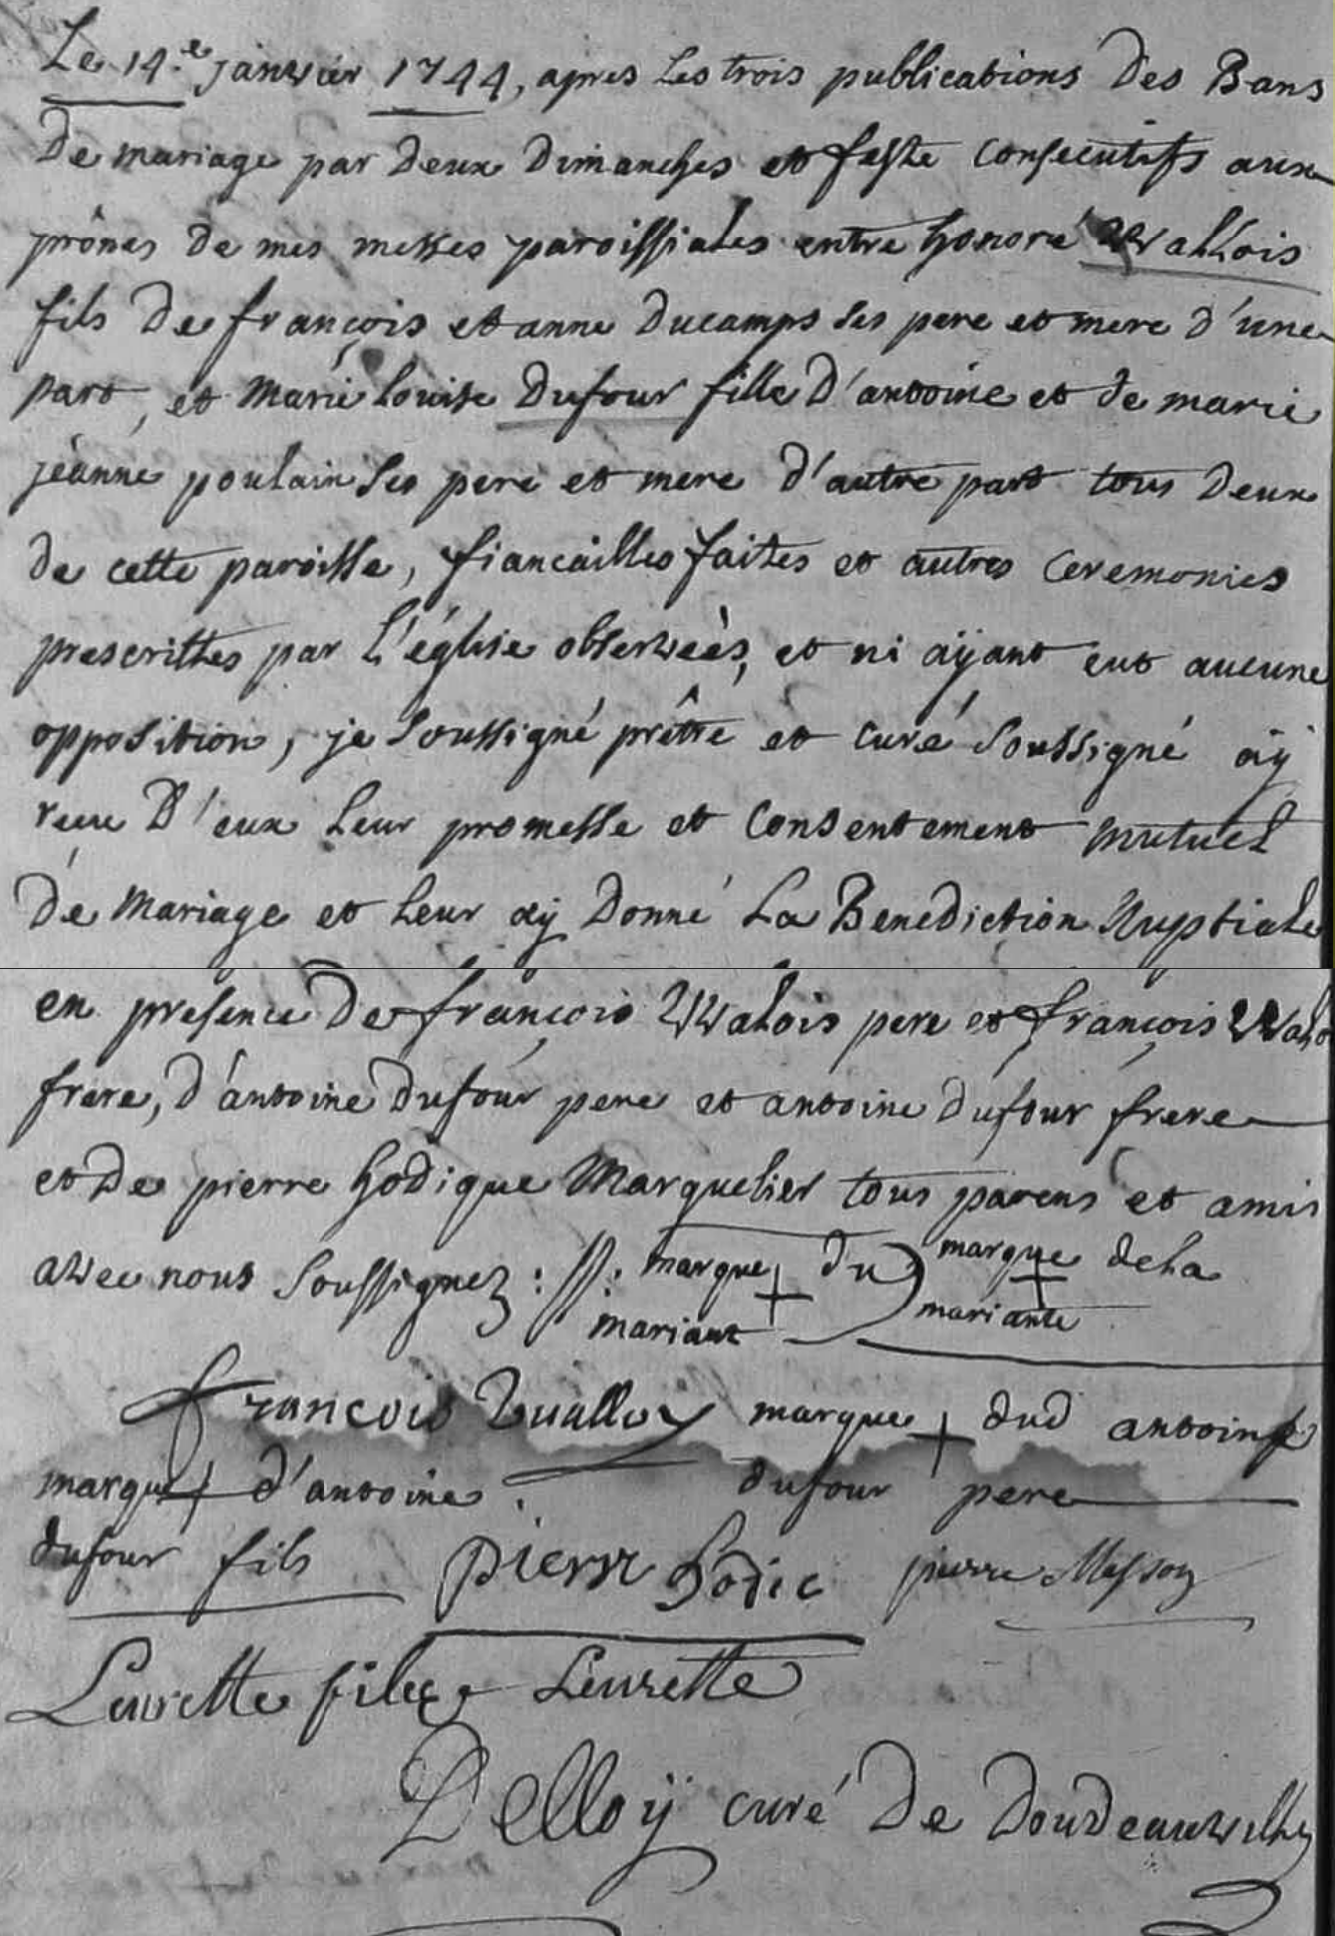 Le 14.e janvier 1744, apres les trois publications des Bans
de mariage par deux dimanches et feste consecutifs aux
prônes de mes messes paroissiales entre honoré Wallois
fils de françois et anne ducamps ses pere et mere d'une
part, et marie louise dufour fille d'antoine et de marie
jeanne poulain ses pere et mere d'autre part tous deux
de cette paroisse, fiancailles faites et autres ceremonies
prescrittes par l'église observeés, et ni aÿant eut aucune
opposition, je soussigné prêtre et curé soussigné aÿ
receu d'eux leur promesse et consentement mutuel
de mariage et leur aÿ donné la Benediction Nuptiale
en presence de françois Walois pere et françois Walo
frere, d'antoine dufour pere et antoine dufour frere
et de pierre hodique Marquelier tous parens et amis
avec nous soussignez : //. marque + du marque + de la
mariant mariante
françois Vualloy marque + dud antoine
marque + d'antoine . dufour pere
dufour fils pierre hodic pierre Masson
Leurette Leurette
Delloÿ curé de doudeauville